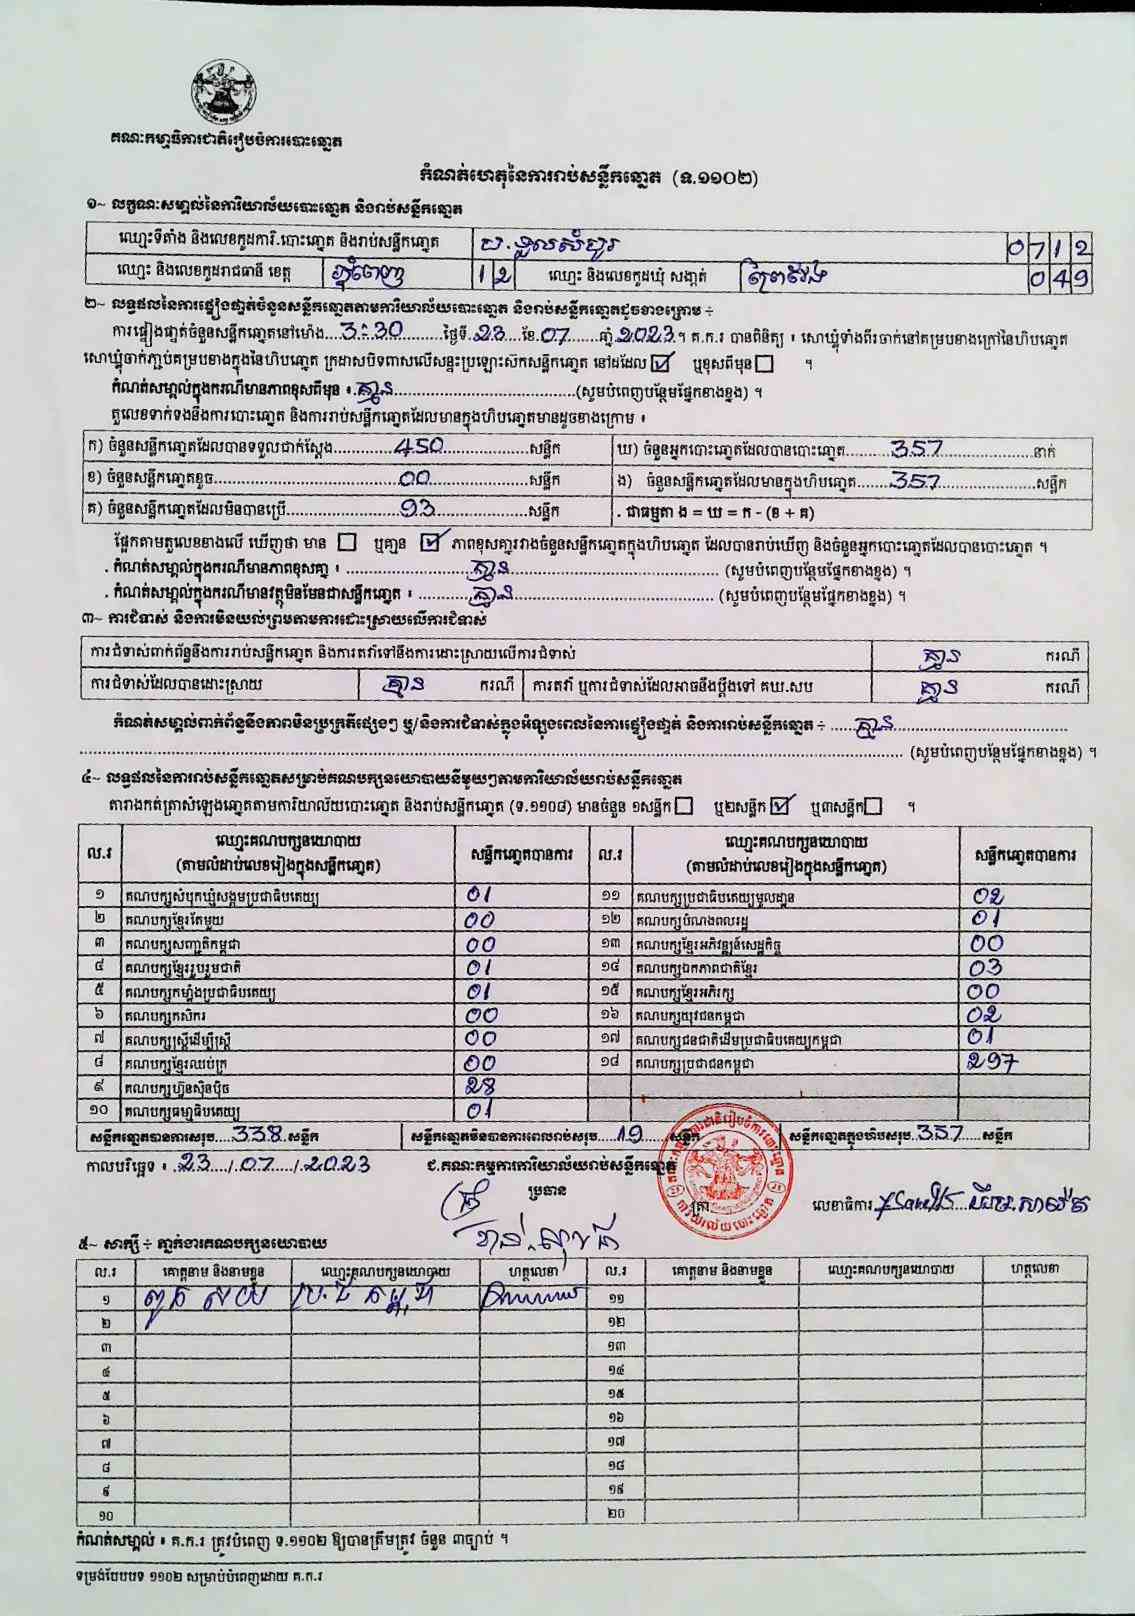 គណៈកម្មាធិការជាតិរៀបចំការបោះឆ្នោត
កំណត់ហេតុនៃការរាប់សន្លឹកឆ្នោត (ទ.១១០២)
១~ លក្ខណៈសម្គាល់នៃការិយាល័យបោះឆ្នោត និងរាប់សន្លឹកឆ្នោត
ឈ្មោះទីតាំង និងលេខកូដការិ.បោះឆ្នោត និងរាប់សន្លឹកឆ្នោត ប.ទួលសំបូរ 0712
ឈ្មោះ និងលេខកូដរាជធានី ខេត្ត ភ្នំពេញ 12 ឈ្មោះ និងលេខកូដឃុំ សង្កាត់ ព្រៃវែង 049
២~ លទ្ធផលនៃការផ្ទៀងផ្ទាត់ចំនួនសន្លឹកឆ្នោតតាមការិយាល័យបោះឆ្នោត និងរាប់សន្លឹកឆ្នោតដូចខាងក្រោម ÷
ការផ្ទៀងផ្ទាត់ចំនួនសន្លឹកឆ្នោតនៅម៉ោង 3:30 ថ្ងៃទី 23 ខែ 07 ឆ្នាំ 2023 ។ គ.ក.រ បានពិនិត្យ ៖ សោឃ្លុំទាំងពីរចាក់នៅគម្របខាងក្រៅនៃហិបឆ្នោត
សោឃ្លុំចាក់ភ្ជាប់គម្របខាងក្នុងនៃហិបឆ្នោត ក្រដាសបិទពាសលើសន្ទះប្រឡោះស៊កសន្លឹកឆ្នោត នៅដដែល ☑ ឬខុសពីមុន ☐ ។
កំណត់សម្គាល់ក្នុងករណីមានភាពខុសពីមុន ៖ គ្មាន (សូមបំពេញបន្ថែមផ្នែកខាងខ្នង) ។
តួលេខទាក់ទងនឹងការបោះឆ្នោត និងការរាប់សន្លឹកឆ្នោតដែលមានក្នុងហិបឆ្នោតមានដូចខាងក្រោម ៖
ក) ចំនួនសន្លឹកឆ្នោតដែលបានទទួលជាក់ស្តែង 450 សន្លឹក ឃ) ចំនួនអ្នកបោះឆ្នោតដែលបានបោះឆ្នោត 357 នាក់
ខ) ចំនួនសន្លឹកឆ្នោតខូច 00 សន្លឹក ង) ចំនួនសន្លឹកឆ្នោតដែលមានក្នុងហិបឆ្នោត 357 សន្លឹក
គ) ចំនួនសន្លឹកឆ្នោតដែលមិនបានប្រើ 93 សន្លឹក . ជាធម្មតា ង = ឃ = ក - (ខ + គ)
ផ្អែកតាមតួលេខខាងលើ ឃើញថា មាន ☐ ឬគ្មាន ☑ ភាពខុសគ្នារវាងចំនួនសន្លឹកឆ្នោតក្នុងហិបឆ្នោត ដែលបានរាប់ឃើញ និងចំនួនអ្នកបោះឆ្នោតដែលបានបោះឆ្នោត ។
. កំណត់សម្គាល់ក្នុងករណីមានភាពខុសគ្នា ៖ គ្មាន (សូមបំពេញបន្ថែមផ្នែកខាងខ្នង) ។
. កំណត់សម្គាល់ក្នុងករណីមានវត្ថុមិនមែនជាសន្លឹកឆ្នោត ៖ គ្មាន (សូមបំពេញបន្ថែមផ្នែកខាងខ្នង) ។
៣~ ការជំទាស់ និងការមិនយល់ព្រមតាមការដោះស្រាយលើការជំទាស់
ការជំទាស់ពាក់ព័ន្ធនឹងការរាប់សន្លឹកឆ្នោត និងការតវ៉ាទៅនឹងការដោះស្រាយលើការជំទាស់ គ្មាន ករណី
ការជំទាស់ដែលបានដោះស្រាយ គ្មាន ករណី ការតវ៉ា ឬការជំទាស់ដែលអាចនឹងប្តឹងទៅ គឃ.សប គ្មាន ករណី
កំណត់សម្គាល់ពាក់ព័ន្ធនឹងភាពមិនប្រក្រតីផ្សេងៗ ឬ/និងការជំទាស់ក្នុងអំឡុងពេលនៃការផ្ទៀងផ្ទាត់ និងការរាប់សន្លឹកឆ្នោត ÷ គ្មាន
(សូមបំពេញបន្ថែមផ្នែកខាងខ្នង) ។
៤~ លទ្ធផលនៃការរាប់សន្លឹកឆ្នោតសម្រាប់គណបក្សនយោបាយនីមួយៗតាមការិយាល័យរាប់សន្លឹកឆ្នោត
តារាងកត់ត្រាសំឡេងឆ្នោតតាមការិយាល័យបោះឆ្នោត និងរាប់សន្លឹកឆ្នោត (ទ.១១០៨) មានចំនួន ១សន្លឹក ☐ ឬ២សន្លឹក ☑ ឬ៣សន្លឹក ☐ ។
ល.រ ឈ្មោះគណបក្សនយោបាយ (តាមលំដាប់លេខរៀងក្នុងសន្លឹកឆ្នោត) សន្លឹកឆ្នោតបានការ ល.រ ឈ្មោះគណបក្សនយោបាយ (តាមលំដាប់លេខរៀងក្នុងសន្លឹកឆ្នោត) សន្លឹកឆ្នោតបានការ
១ គណបក្សសំបុកឃ្មុំសង្គមប្រជាធិបតេយ្យ 01 ១១ គណបក្សប្រជាធិបតេយ្យមូលដ្ឋាន 02
២ គណបក្សខ្មែរតែមួយ 00 ១២ គណបក្សបំណងពលរដ្ឋ 01
៣ គណបក្សសញ្ជាតិកម្ពុជា 00 ១៣ គណបក្សខ្មែរអភិវឌ្ឍន៍សេដ្ឋកិច្ច 00
៤ គណបក្សខ្មែររួបរួមជាតិ 01 ១៤ គណបក្សឯកភាពជាតិខ្មែរ 03
៥ គណបក្សកម្លាំងប្រជាធិបតេយ្យ 01 ១៥ គណបក្សខ្មែរអភិរក្ស 00
៦ គណបក្សកសិករ 00 ១៦ គណបក្សយុវជនកម្ពុជា 02
៧ គណបក្សស្ត្រីដើម្បីស្ត្រី 00 ១៧ គណបក្សជនជាតិដើមប្រជាធិបតេយ្យកម្ពុជា 01
៨ គណបក្សខ្មែរឈប់ក្រ 00 ១៨ គណបក្សប្រជាជនកម្ពុជា 297
៩ គណបក្សហ៊្វុនស៊ិនប៉ិច 28
១០ គណបក្សធម្មាធិបតេយ្យ 01
សន្លឹកឆ្នោតបានការសរុប 338 សន្លឹក សន្លឹកឆ្នោតមិនបានការពេលរាប់សរុប 19 សន្លឹក សន្លឹកឆ្នោតក្នុងហិបសរុប 357 សន្លឹក
កាលបរិច្ឆេទ ៖ 23 / 07 / 2023 ជ.គណៈកម្មការការិយាល័យរាប់សន្លឹកឆ្នោត
ប្រធាន
ត្រា
លេខាធិការ
៥~ សាក្សី ÷ ភ្នាក់ងារគណបក្សនយោបាយ
ល.រ គោត្តនាម និងនាមខ្លួន ឈ្មោះគណបក្សនយោបាយ ហត្ថលេខា ល.រ គោត្តនាម និងនាមខ្លួន ឈ្មោះគណបក្សនយោបាយ ហត្ថលេខា
១ ១១
២ ១២
៣ ១៣
៤ ១៤
៥ ១៥
៦ ១៦
៧ ១៧
៨ ១៨
៩ ១៩
១០ ២០
កំណត់សម្គាល់ ៖ គ.ក.រ ត្រូវបំពេញ ទ.១១០២ ឱ្យបានត្រឹមត្រូវ ចំនួន ៣ច្បាប់ ។
ទម្រង់បែបបទ ១១០២ សម្រាប់បំពេញដោយ គ.ក.រ